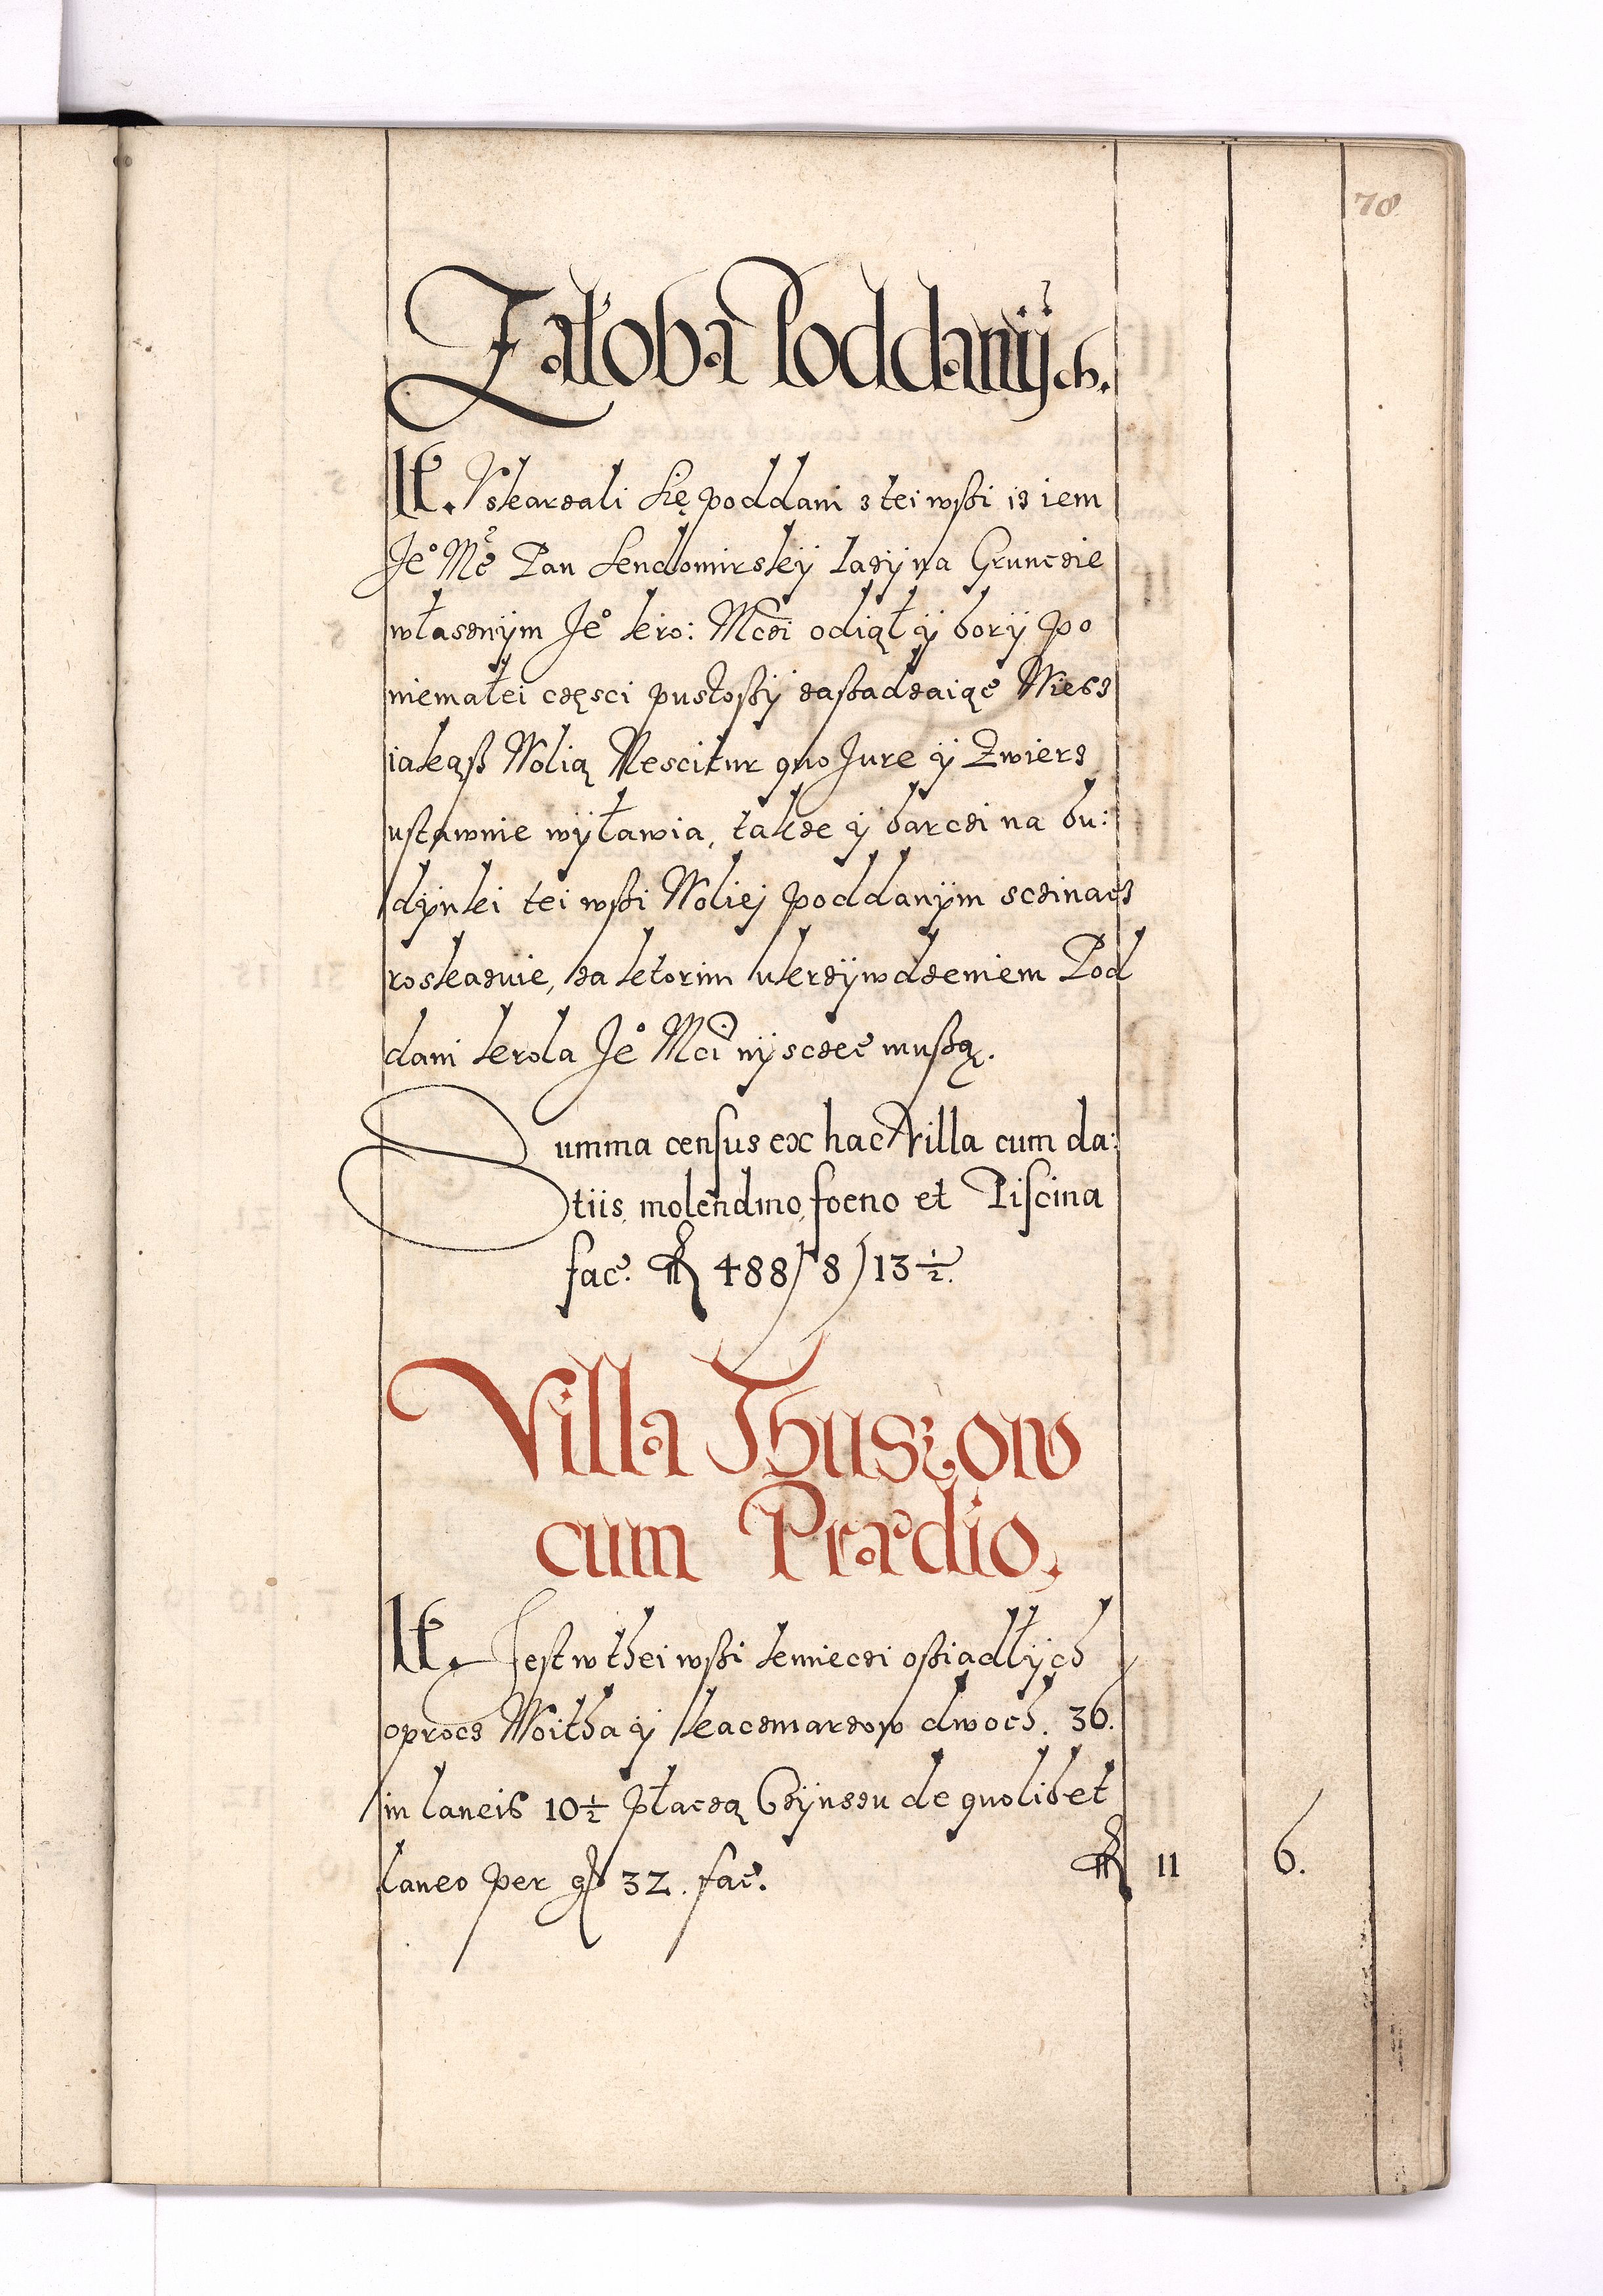 78
Załoba Poddanÿch.
It. Vskarzali się poddani z tei wßi iz iem
Je° Mć Pan Sendomirskÿ lazÿ na Grunczie
własznÿm Je° kro: Mczi odiął ÿ borÿ po
niemałei części pustoßÿ zaßadzaiąc Wiesz
iakąß Wolią Nescitur quo Jure ÿ Zwierz
ustawnie wÿławia, takze ÿ barczi na bu:
dÿnki tei wßi Woliej poddanÿm sczinacz
roskazuie, za ktorim ukrzÿwdzeniem Pod
dani krola Je° Mci nÿsczec mußą.
Summa census ex hac Villa cum da:
tiis, molendino, foeno et Piscina
fac. 488 / 8 / 13 ½.
Villa Thuszow
cum Prædio.
It. Jest w thei wßi kmieczi oßiadłÿch
oprocz Woitha ÿ kaczmarzow dwoch. 36.
in laneis 10 ½ płaczą Czÿnszu de quolibet
laneo per g 32. fac. 11 6.